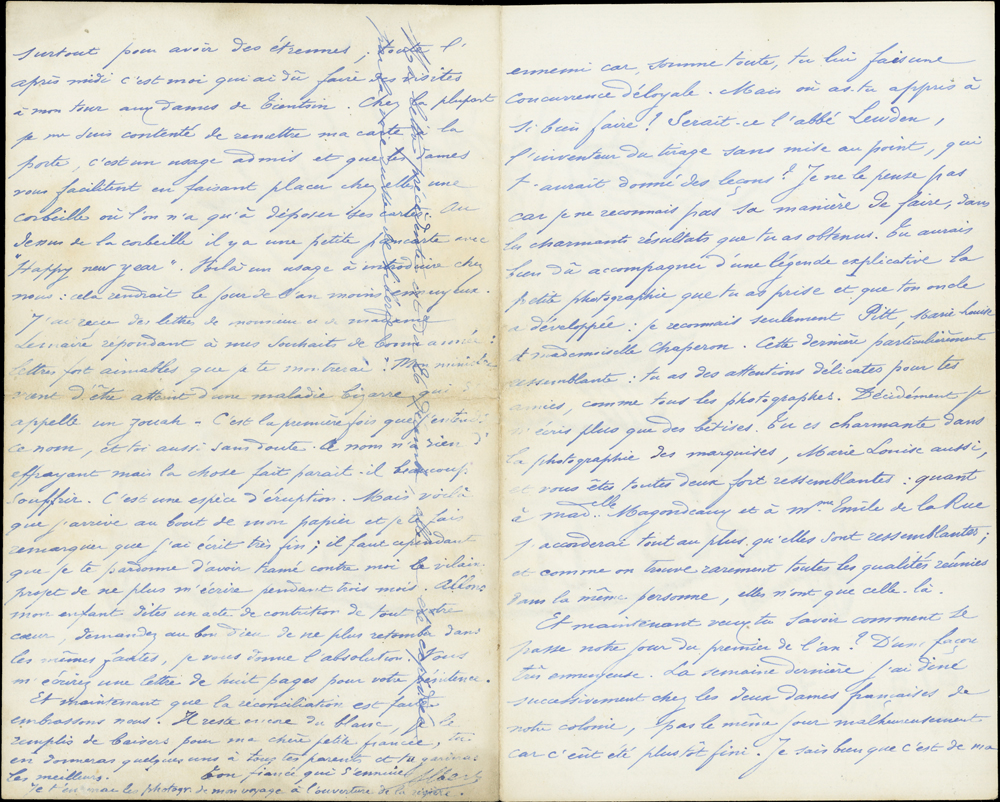 surtout pour avoir des étrennes ; toute l'
après midi c'est moi qui ai dû faire des visites
à mon tour aux dames de Tientsin. Chez la plupart
je me suis contenté de remettre ma carte à la
porte, c'est un usage admis et que les dames
vous facilitent en faisant placer chez elle une
corbeille où l'on n'a qu'à déposer ses cartes. Au
dessus de la corbeille il y a une petite pancarte avec
"Happy new year". Voilà un usage à introduire chez
nous : cela rendrait le jour de l'an moins ennuyeux.
J'ai reçu des lettre de monsieur et de madame
Lemaire repondant à mes souhait de bonne année :
lettres fort aimables que je te montrerai. Mon ministre
vient d'être atteint d'une maladie bizarre qui s'
appelle un zouah - C'est la première fois que j'entends
ce nom, et toi aussi sans doute. Ce nom n'a rien d'
effrayant mais la chose fait parait-il beaucoup
souffrir. C'est une espèce d'éruption. Mais voilà
que j'arrive au bout de mon papier et je te fais
remarquer que j'ai écrit très fin ; il faut cependant
que je te pardonne d'avoir tramé contre moi le vilain
projet de ne plus m'écrire pendant trois mois. Allons
mon enfant dites un acte de contrition de tout votre
cœur, demandez au bon dieu de ne plus retomber dans
les mêmes fautes, je vous donne l'absolution. Vous
m'écrirez une lettre de huit pages pour votre pénitence.
Et maintenant que la réconciliation est faite
embrassons nous. Il reste encore du blanc, je le
remplis de baisers pour ma chère petite fiancée, tu
en donneras quelques uns à tous tes parents et tu garderas
les meilleurs. Ton fiancé qui s'ennuie Albert
Je t'envoie le photogr. de mon voyage à l'ouverture de la rivière.
Ma lettre précédente est du 26
par la voie russe de
ennemi car, somme toute, tu lui fais une
concurrence déloyale. Mais où as-tu appris à
si bien faire ? Serait-ce l'abbé Lewden,
l'inventeur du tirage sans mise au point, qui
t'aurait donné des leçons ? Je ne le pense pas
car je ne reconnais pas sa manière de faire, dans
les charmants résultats que tu as obtenus. Tu aurais
bien dû accompagner d'une légende explicative la
petite photographie que tu as prise et que ton oncle
a développée : je reconnais seulement Pitt, Marie Louise
et mademoiselle Chaperon. Cette dernière particulièrement
ressemblante : tu as des attentions délicates pour tes
amies, comme tous les photographes. Décidément je
n'écris plus que des bêtises. Tu es charmante dans
la photographie des marquises, Marie Louise aussi,
et vous êtes toutes deux fort ressemblantes : quant
à mad.elle Magondeaux et à mme Emile de la Rue
j'accorderai tout au plus qu'elles sont ressemblantes ;
et comme on trouve rarement toutes les qualités réunies
dans la même personne, elles n'ont que celle-là.
Et maintenant veux-tu savoir comment se
passe notre jour du premier de l'an ? D'une façon
très ennuyeuse. La semaine dernière j'ai diné
successivement chez les deux dames françaises de
notre colonie, pas le même jour malheureusement
car c'eût été plus tôt fini. Je sais bien que c'est de ma